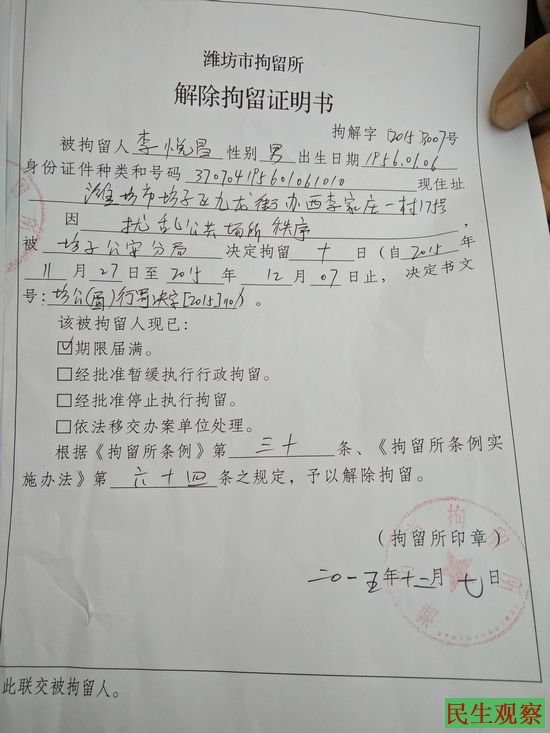 潍坊市拘留所
解除拘留证明书
拘解字[2015]3007号
被拘留人 李悦昌 性别 男 出生日期 1956.01.06
身份证件种类和号码 370704195601061010 现住址
潍坊市坊子区九龙街办西李家庄一村17号
因 扰乱公共场所秩序 ,
被 坊子公安分局 决定拘留 十 日(自 2015 年
11 月 27 日至 2015 年 12 月 07 日止,决定书文
号:坊公( )行罚决字[2015] 。
该被拘留人现已:
☑期限届满。
□经批准暂缓执行行政拘留。
□经批准停止执行拘留。
□依法移交办案单位处理。
根据《拘留所条例》第 三十 条、《拘留所条例实
施办法》第 六十四 条之规定,予以解除拘留。
(拘留所印章)
二〇一五年十二月七日
此联交被拘留人。
民生观察